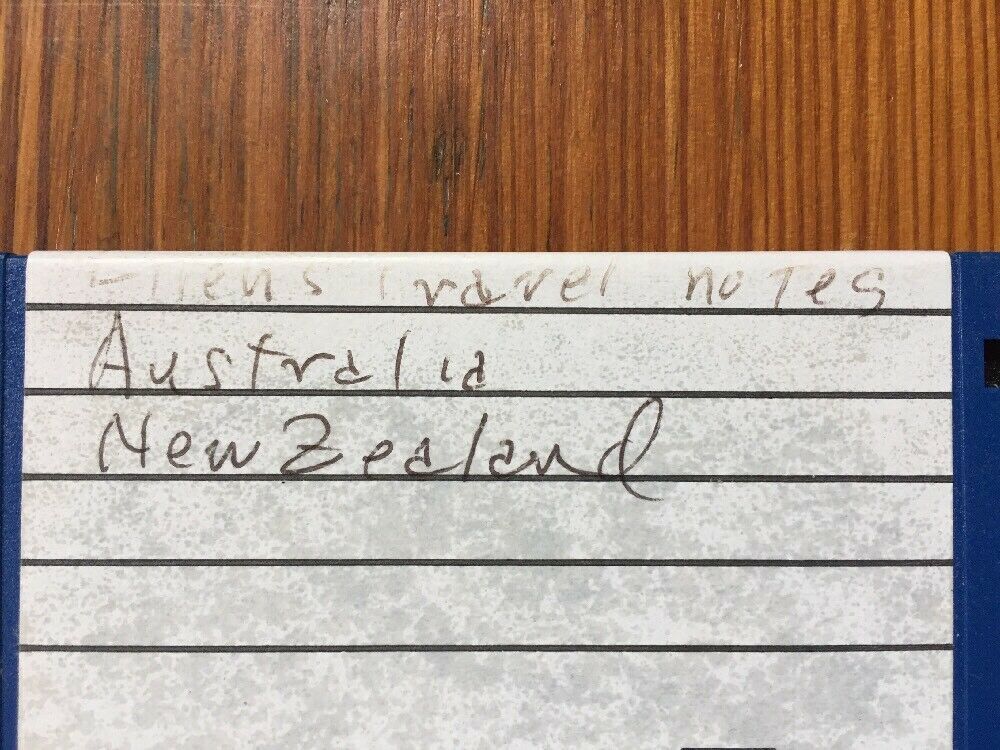 Travel notes
Australia
New Zealand